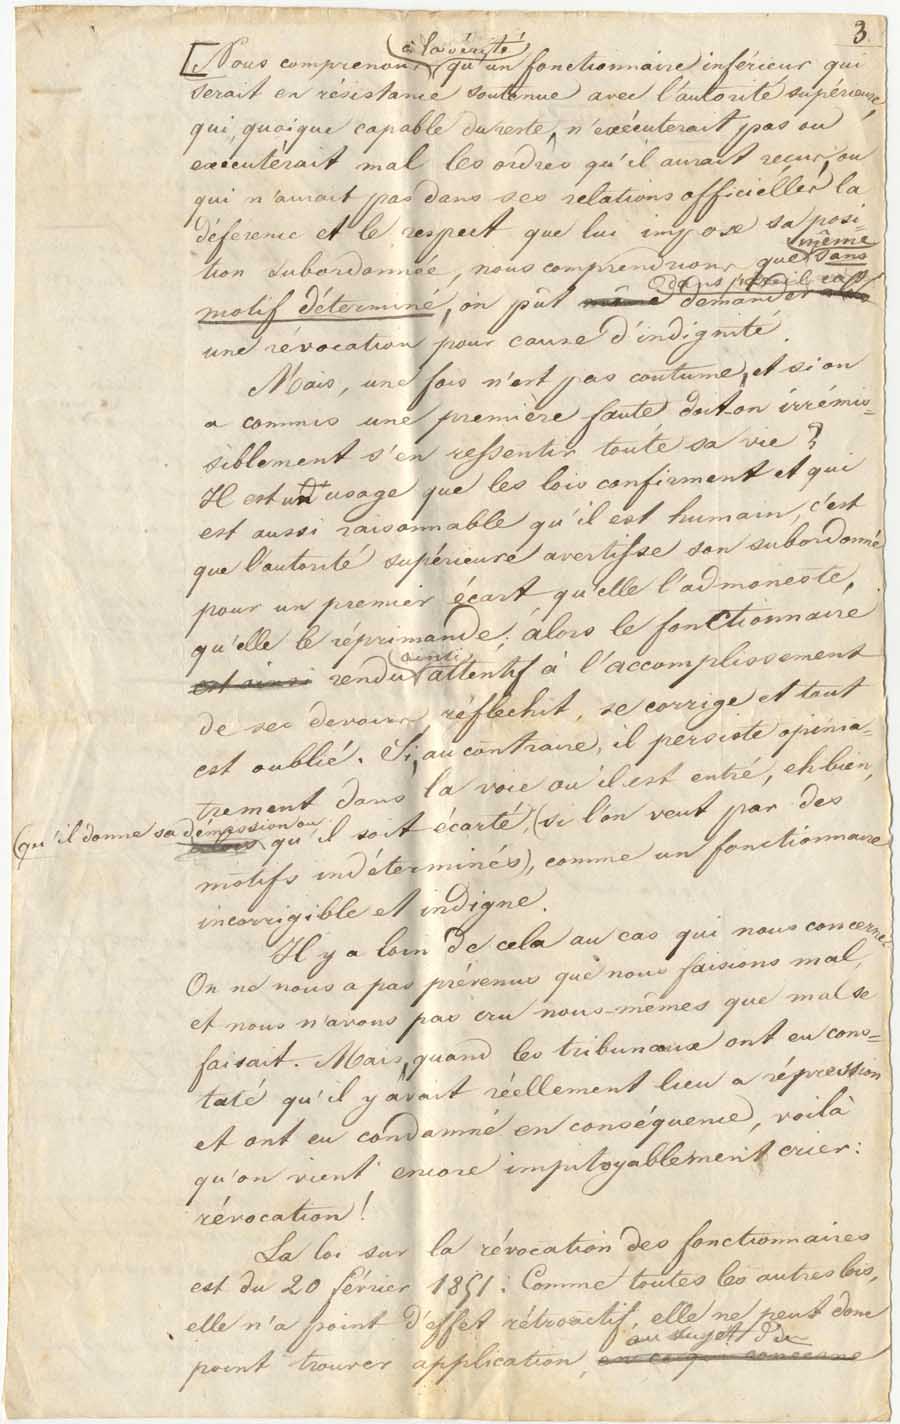 3.
à la vérité
[Nous comprenons qu'un fonctionnaire inférieur qui
serait en résistance soutenue avec l'autorité supérieure,
qui, quoique capable du reste, n'exécuterait pas ou
exécuterait mal les ordres qu'il aurait reçus, ou
qui n'aurait pas dans ses relations officielles la
déférence et le respect que lui impose sa posi-
même
tion subordonnée, nous comprendrions que sans
dans pareil cas
motif déterminé, on pût même demander
une révocation pour cause d'indignité.
Mais, une fois n'est pas coutume, et si on
a commis une première faute doit-on irrémis-
siblement s'en ressentir toute sa vie ?
Il est d'usage que les lois confirment et qui
est aussi raisonnable qu'il est humain, c'est
que l'autorité supérieure avertisse son subordonné
pour un premier écart qu'elle l'admoneste,
qu'elle le réprimande; alors le fonctionnaire
ainsi
est ainsi rendu attentif à l'accomplissement
de ses devoirs réfléchit, se corrige et tout
est oublié. Si, au contraire, il persiste opinia-
trement dans la voie où il est entré, eh bien,
(qu'il donne sa démission ou
qu'il soit écarté, (si l'on veut par des
motifs indéterminés), comme un fonctionnaire
incorrigible et indigne.
Il y a loin de cela au cas qui nous concerne.
On ne nous a pas prévenus que nous faisions mal,
et nous n'avons pas cru nous-mêmes que mal se
faisait. Mais, quand les tribunaux ont eu cons-
taté qu'il y avait réellement lieu a répression
et ont eu condamné en conséquence, voilà
qu'on vient encore impitoyablement crier:
révocation !
La loi sur la révocation des fonctionnaires
est du 20 février 1851 : Comme toutes les autres lois,
elle n'a point d'effet rétroactif, elle ne peut donc
au sujet du
point trouver application, en ce qui concerne